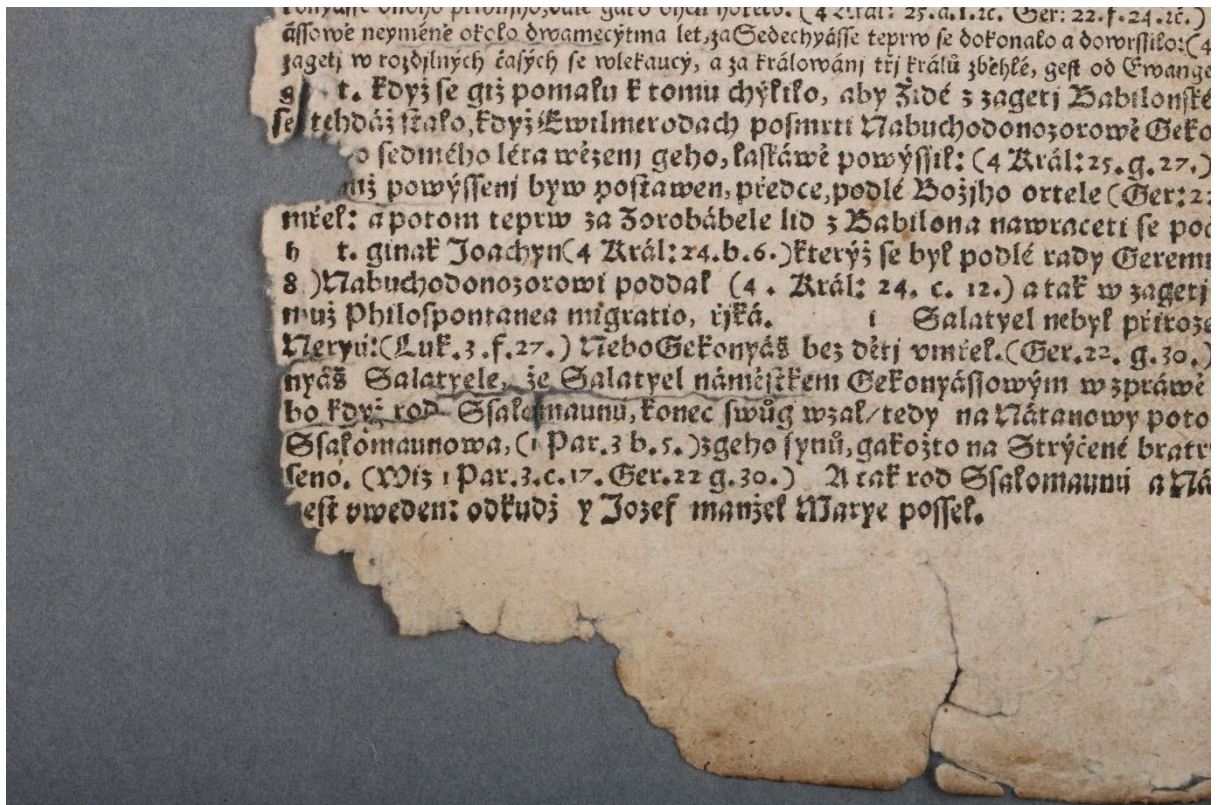 ássowě neyméně okolo dwamecýtma let, za Sedechyásse teprw se dokonalo a dowrssilo: (4
zagetj w rozdjlných časých se wlekaucý, a za králowánj třj králů zběhlé, gest od Ewange
g t. když se giž pomalu k tomu chýlilo, aby Židé z zagetj Babilonské
se tehdáž stalo, když Ewilmerodach posmrti Nabuchodonozorowě Geko
o sedmého léta wězenj geho, laskáwě powýssil: (4 Král: 25. g. 27.)
mž powýssenj byw postawen, předce, podlé Božjho ortele (Ger: 22
mřel: a potom teprw za Zorobábele lid z Babilona nawraceti se poč
h t. ginak Joachyn (4 Král: 24. b. 6.) kterýž se byl podlé rady Geremi
8.) Nabuchodonozorowi poddal (4. Král: 24. c. 12.) a tak w zagetj
muž Philo spontanea migratio, řjká. i Salatyel nebyl přiroze
Neryů: (Luk. 3. f. 27.) Nebo Gekonyáš bez dětj vmřel. (Ger. 22. g. 30.)
nyáš Salatyele, že Salatyel náměstkem Gekonyássowým w zpráwě
bo když rod Ssalomaunů, konec swůg wzal/ tedy na Nátanowy poto
Ssalomaunowa, (1 Par. 3 b. 5.) z geho synů, gakožto na Strýčené bratr
seno. (Wiz 1 Par. 3. c. 17. Ger. 22 g. 30.) A tak rod Ssalomaunů a Ná
gest vweden: odkudž y Jozef manžel Marye possel.